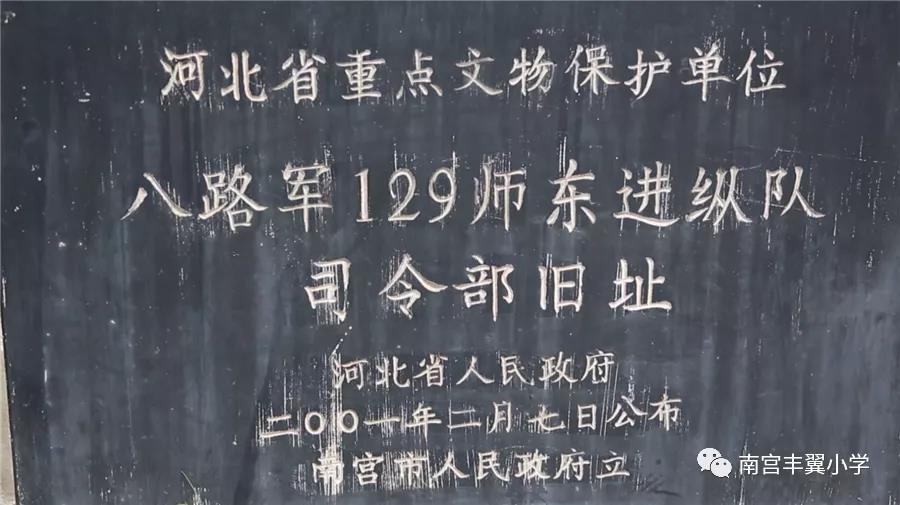 河北省重点文物保护单位
八路军129师东进纵队
司令部旧址
河北省人民政府
二〇〇一年二月七日公布
南宫市人民政府立
南宫丰翼小学